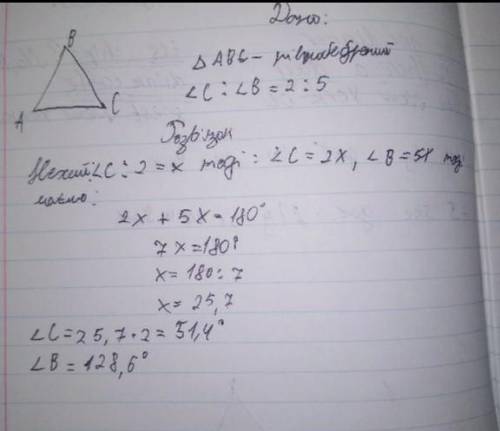 Дано:
B
A
C
△ABC – рівнобедрений
∠C : ∠B = 2 : 5
Розв'язок
Нехай ∠C : 2 = x тоді : ∠C = 2x, ∠B = 5x тоді
маємо :
2x + 5x = 180°
7x = 180°
x = 180 : 7
x = 25,7
∠C = 25,7 · 2 = 51,4°
∠B = 128,6°